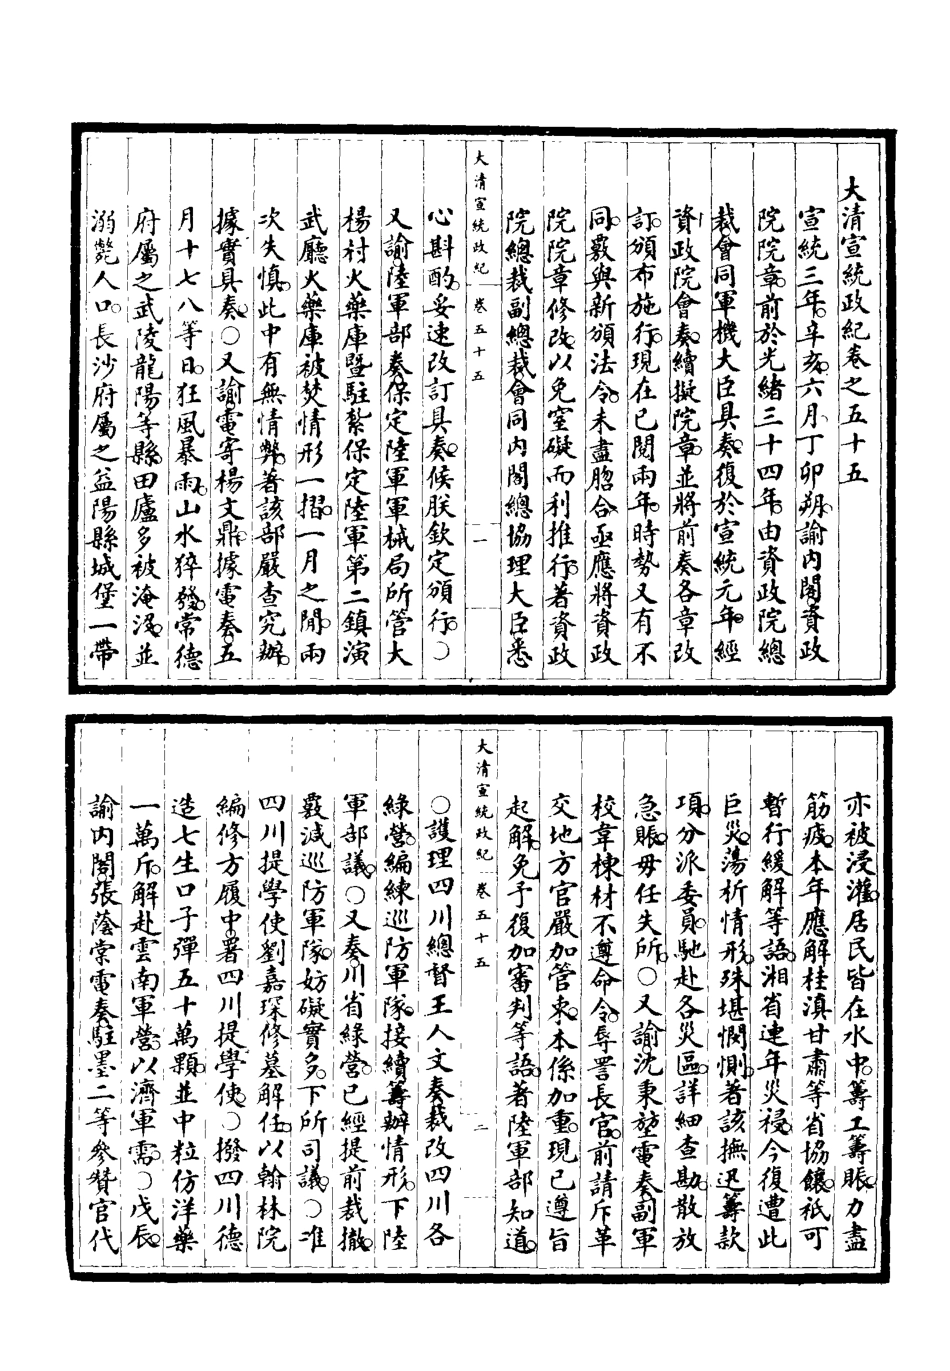 大清宣統政紀卷之五十五
宣統三年。辛亥。六月。丁卯朔。諭內閣。資政
院院章。前於光緒三十四年。由資政院總
裁會同軍機大臣具奏。復於宣統元年。經
資政院會奏。續擬院章。並將前奏各章改
訂。頒布施行。現在已閱兩年。時勢又有不
同。覈與新頒法令。未盡脗合。亟應將資政
院院章修改。以免窒礙而利推行。著資政
院總裁副總裁會同內閣總協理大臣悉
大清宣統政紀 卷五十五 一
心斟酌。妥速改訂具奏。候朕欽定頒行。○
又諭。陸軍部奏。保定陸軍軍械局所管大
楊村火藥庫暨駐紮保定陸軍第二鎮演
武廳火藥庫被焚情形一摺。一月之閒。兩
次失慎。此中有無情弊。著該部嚴查究辦。
據實具奏。○又諭。電寄楊文鼎。據電奏。五
月十七八等日。狂風暴雨。山水猝發。常德
府屬之武陵龍陽等縣。田廬多被淹沒。並
溺斃人口。長沙府屬之益陽縣城堡一帶
亦被浸灌。居民皆在水中。籌工籌賑。力盡
筋疲。本年應解桂滇甘肅等省協饟。祇可
暫行緩解等語。湘省連年災祲。今復遭此
巨災。蕩析情形。殊堪憫惻。著該撫迅籌款
項。分派委員。馳赴各災區。詳細查勘。散放
急賑。毋任失所。○又諭。沈秉堃電奏。副軍
校韋棟材不遵命令。辱詈長官。前請斥革
交地方官嚴加管束。本係加重。現已遵旨
起解。免予復加審判等語。著陸軍部知道。
大清宣統政紀 卷五十五 二
○護理四川總督王人文奏。裁改四川各
綠營。編練巡防軍隊。接續籌辦情形。下陸
軍部議。○又奏。川省綠營。已經提前裁撤。
覈減巡防軍隊。妨礙實多。下所司議。○准
四川提學使劉嘉琛修墓解任。以翰林院
編修方履中。署四川提學使。○撥四川德
造七生口子彈五十萬顆。並中粒仿洋藥
一萬斤。解赴雲南軍營。以濟軍需。○戊辰。
諭內閣。張蔭棠電奏。駐墨二等參贊官代